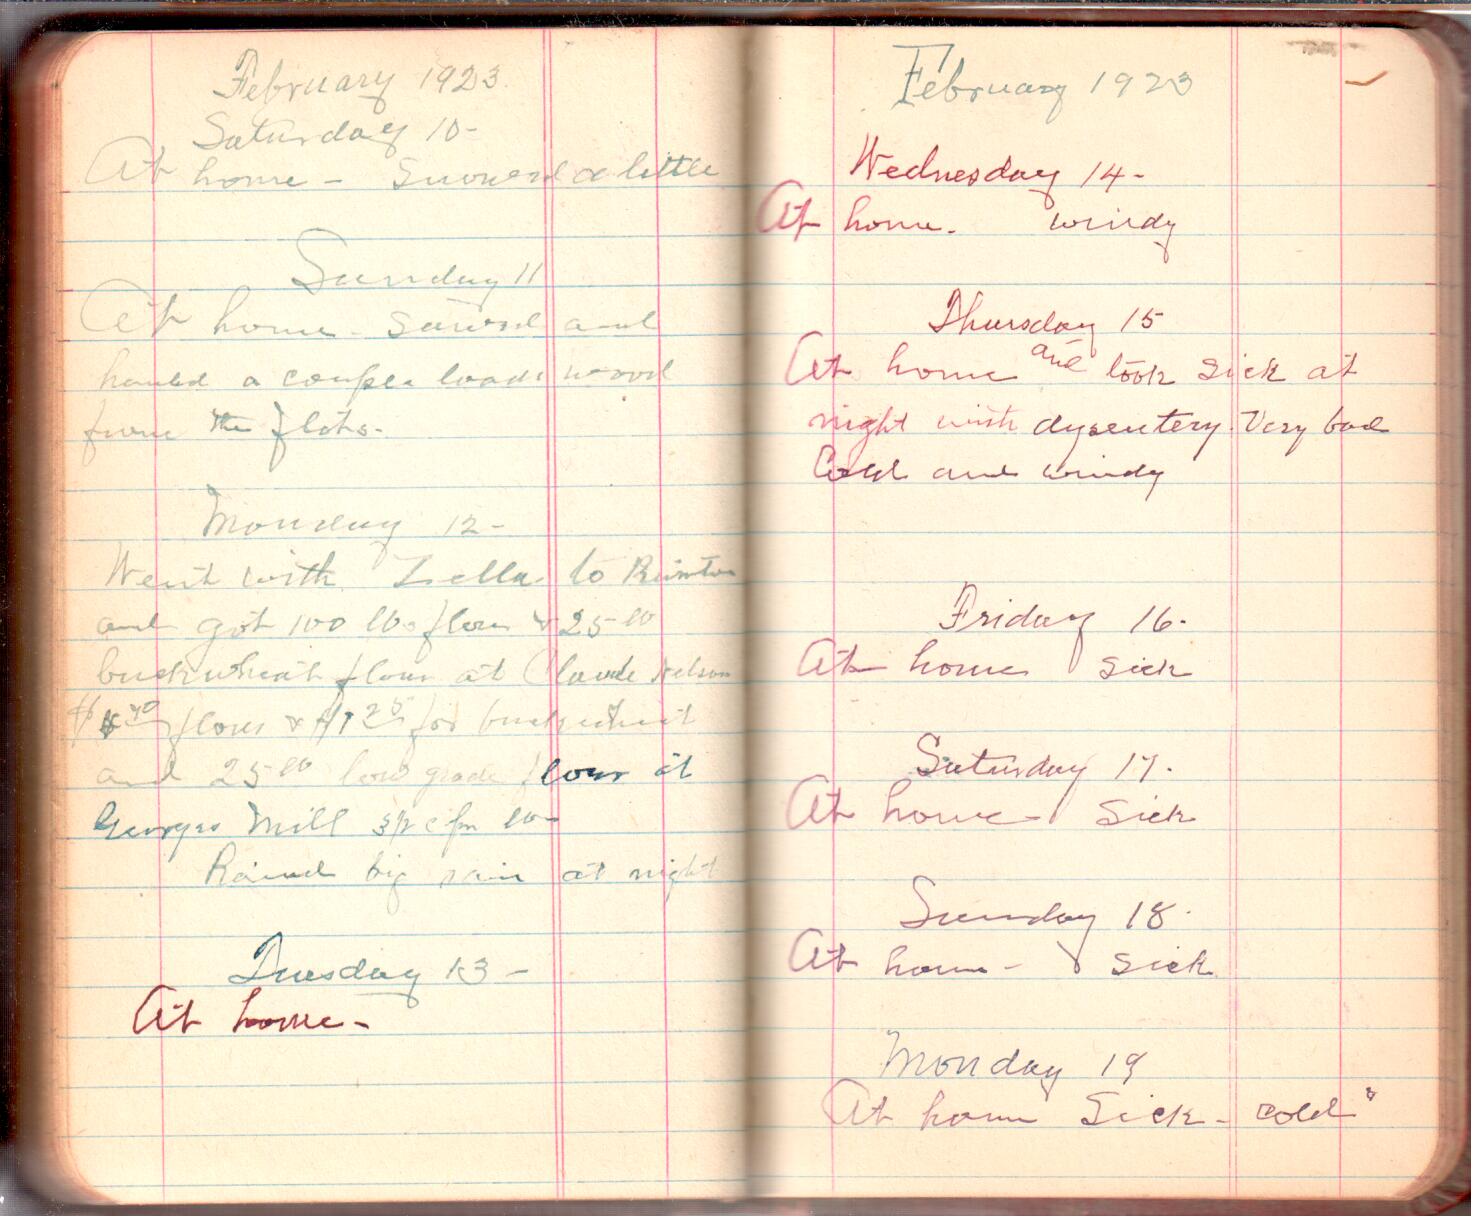 February 1923
Saturday 10-
At home - Snowed a little
Sunday 11
At home - Sawed and
hauled a couple loads wood
from the flats.
Monday 12-
Went with Zella to
and got 100 lbs flour & 25 lb
buckwheat flour at Claude Nelson
flour & $1 25 for buckwheat
and 25 lb low grade flour at
Georges Mill
Rained big rain at night
Tuesday 13-
At home-
February 1923
Wednesday 14-
At home. windy
Thursday 15
At home and took sick at
night with dysentery. Very bad
Cold and windy
Friday 16-
At home sick
Saturday 17.
At home- Sick
Sunday 18.
At home- sick
Monday 19
At home Sick - cold